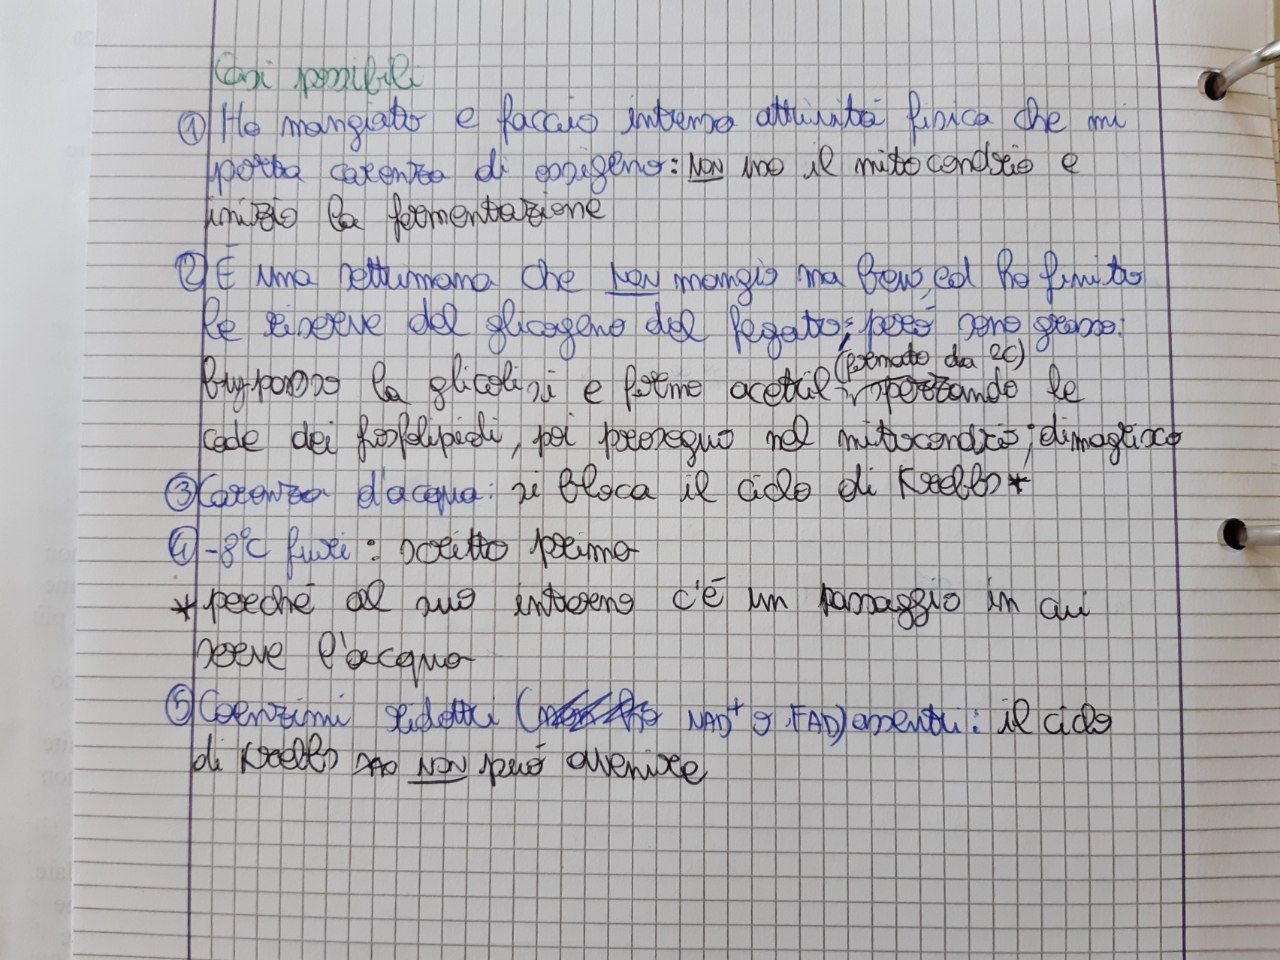 Casi possibili
① Ho mangiato e faccio intensa attività fisica che mi
porta carenza di ossigeno: NON uso il mitocondrio e
inizio la fermentazione
② È una settimana che NON mangio ma bevo, ed ho finito
le riserve del glicogeno del fegato; però sono grasso:
(formato da 2C)
by-passo la glicolisi e formo acetil, spezzando le
code dei fosfolipidi, poi proseguo nel mitocondrio; dimagrisco
③ Carenza d'acqua: si bloca il ciclo di Krebbs*
④ -8°C fuori: scritto prima
* perché al suo interno c'è un passaggio in cui
serve l'acqua
⑤ Coenzimi ridotti ( NAD⁺ o FAD) assenti: il ciclo
di Krebbs NON può avvenire